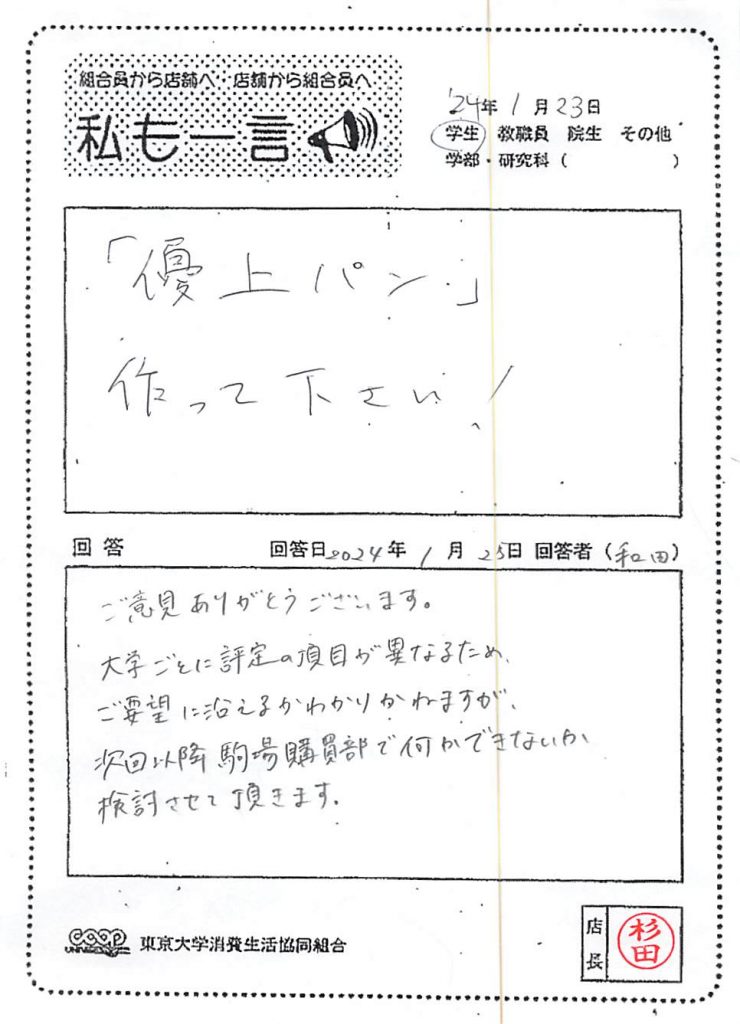 組合員から店舗へ 店舗から組合員へ
私も一言
'24年1月23日
学生 教職員 院生 その他
学部・研究科( )
「優上パン」
作って下さい!
回答 回答日2024年1月25日 回答者(和田)
ご意見ありがとうございます。
大学ごとに評定の項目が異なるため、
ご要望に沿えるかわかりかねますが、
次回以降駒場購買部で何かできないか
検討させて頂きます。
coop
東京大学消費生活協同組合
店長
杉田